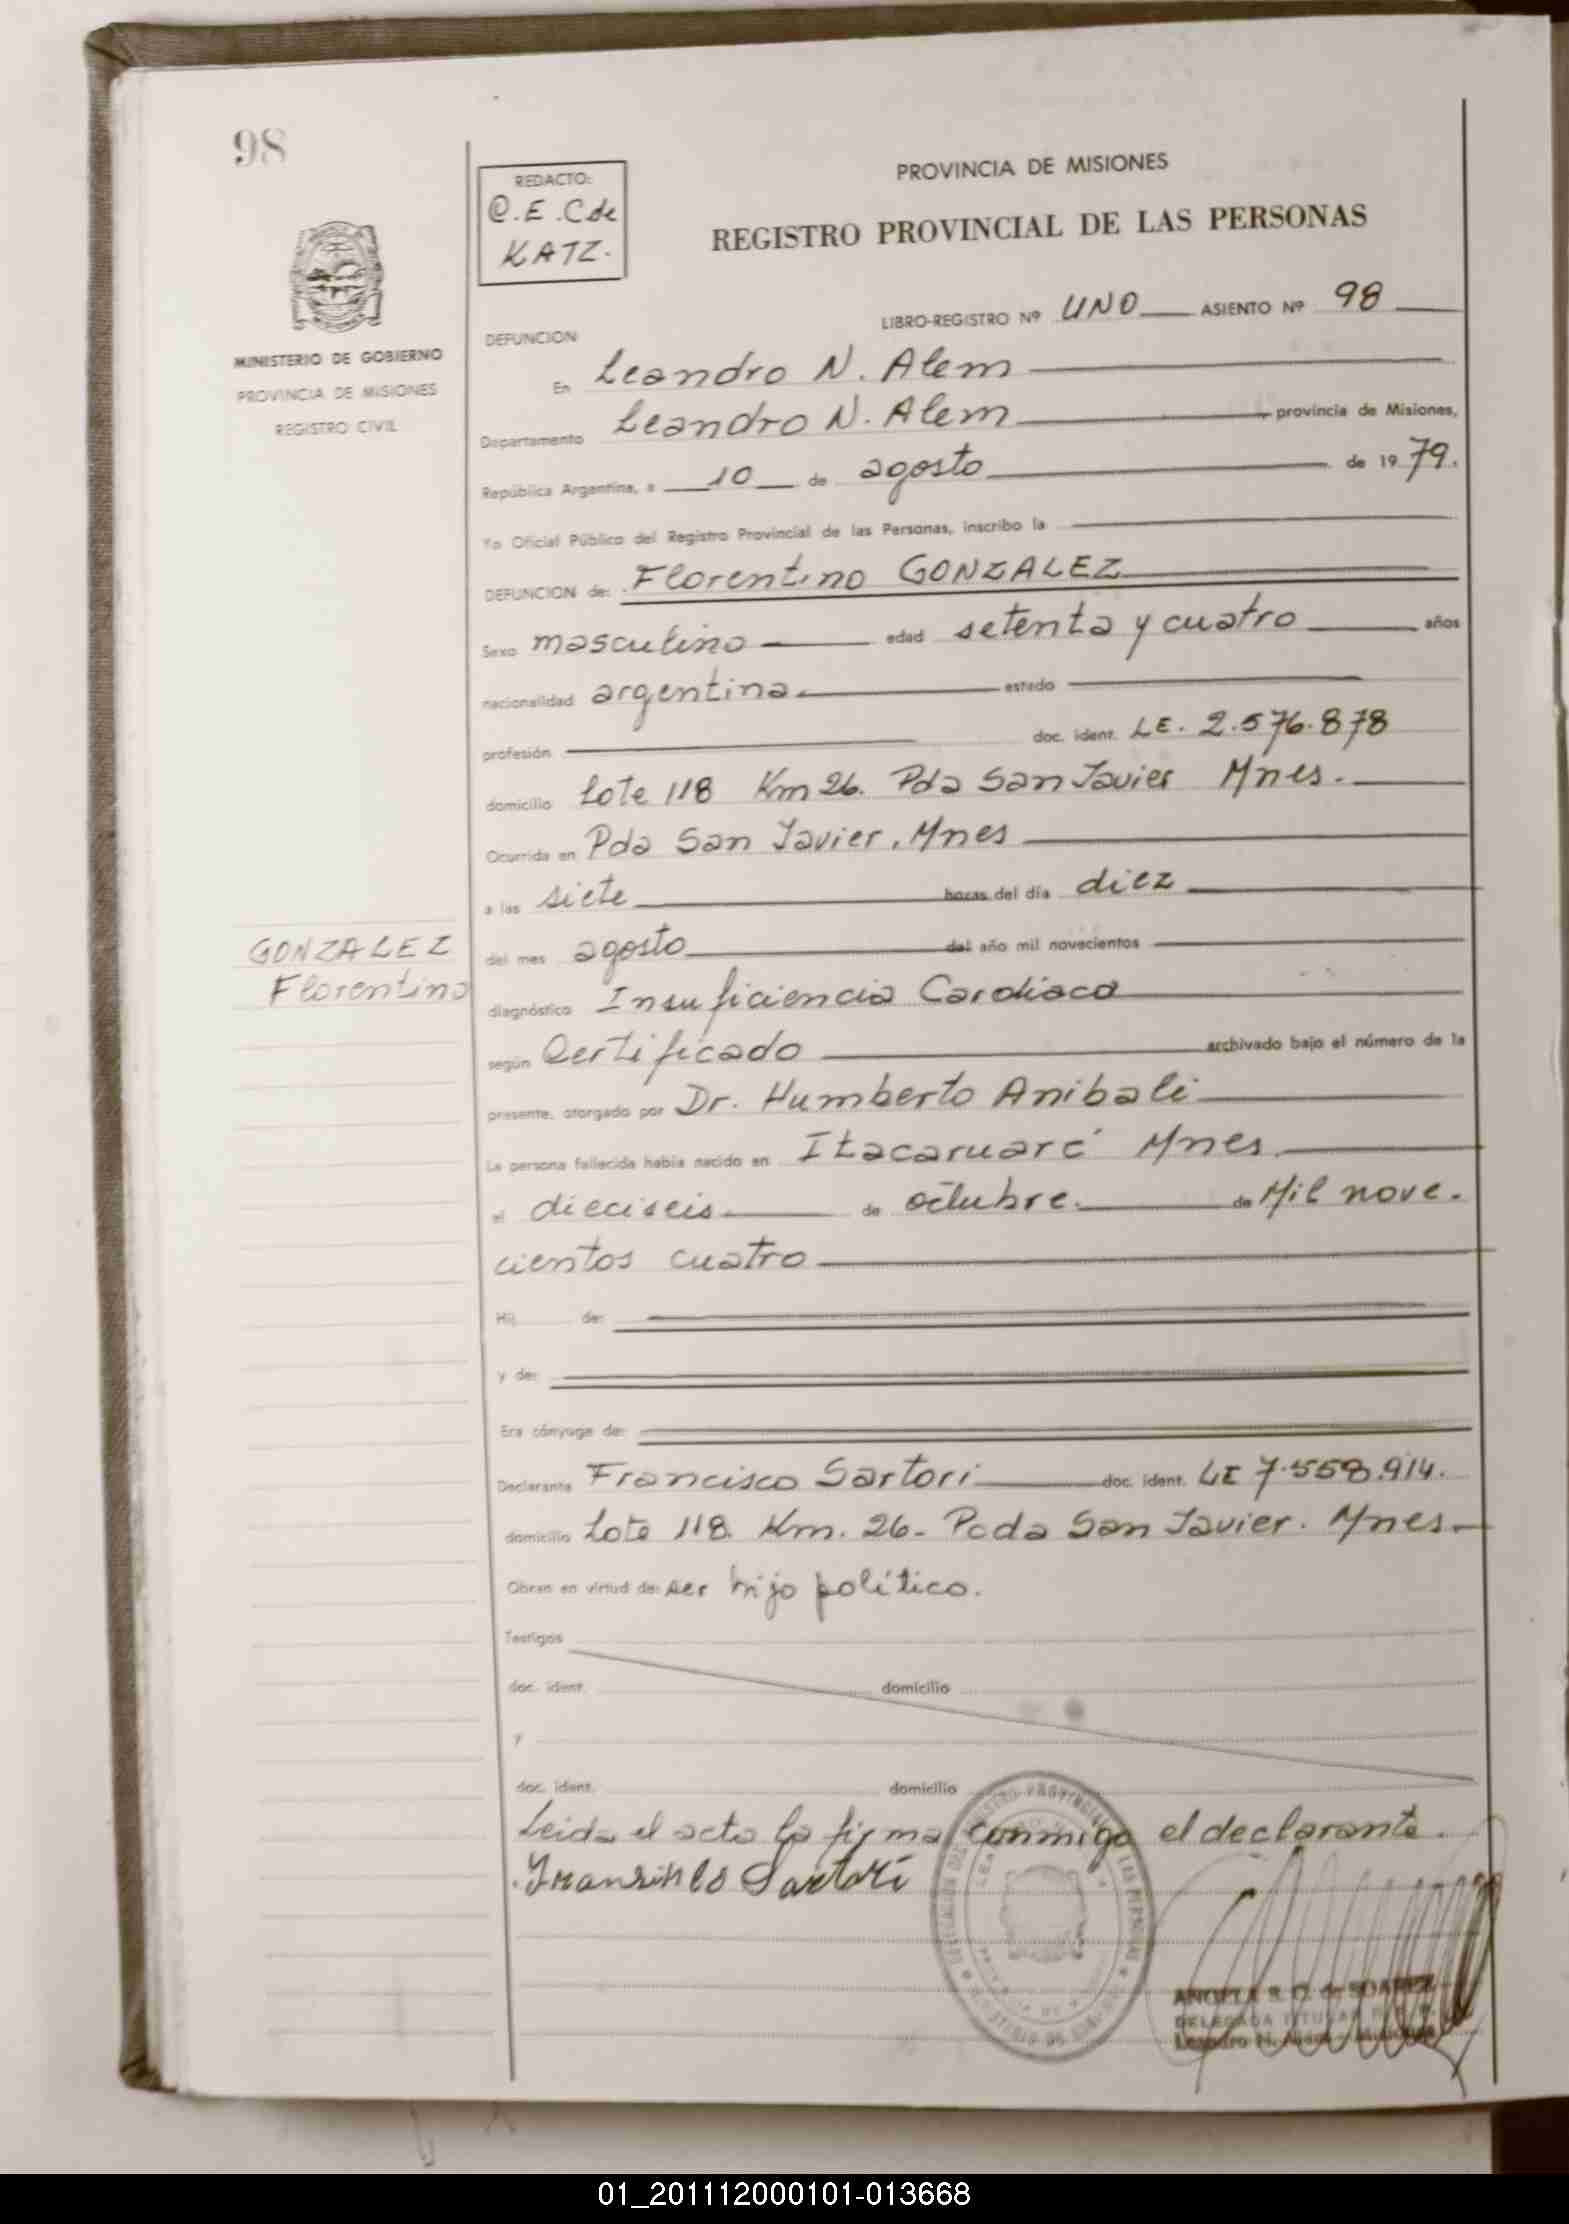 98
REDACTO:
C.E.C de
KATZ.
PROVINCIA DE MISIONES
REGISTRO PROVINCIAL DE LAS PERSONAS
MINISTERIO DE GOBIERNO
PROVINCIA DE MISIONES
REGISTRO CIVIL
LIBRO-REGISTRO Nº UNO ASIENTO Nº 98
DEFUNCION
En Leandro N. Alem
Departamento Leandro N. Alem provincia de Misiones,
República Argentina, a 10 de agosto de 1979.
Yo Oficial Público del Registro Provincial de las Personas, inscribo la
DEFUNCION de: Florentino GONZALEZ
Sexo masculino edad setenta y cuatro años
nacionalidad argentina. estado
profesión doc. ident. LE. 2.576.878
domicilio Lote 118 Km 26. Pda San Javier Mnes.
Ocurrida en Pda San Javier. Mnes
a las siete horas del día diez
del mes agosto del año mil novecientos
GONZALEZ
Florentino
diagnóstico Insuficiencia Cardiaca
según Certificado archivado bajo el número de la
presente, otorgado por Dr. Humberto Anibali
La persona fallecida había nacido en Itacaruaré Mnes.
el dieciseis. de octubre. de Mil nove.
cientos cuatro
Hij de:
y de:
Era cónyuge de:
Declarante Francisco Sartori doc. ident. LE 7.558.914.
domicilio Lote 118. Km. 26- Pcda San Javier. Mnes.
Obran en virtud de: ser hijo político.
Testigos
doc. ident. domicilio
y
doc. ident. domicilio
Leida el acta la firma conmigo el declarante.
Sartori
ANGELA S. C. de SOAREZ
DELEGADA TITULAR
Leandro N. Alem
01_201112000101-013668